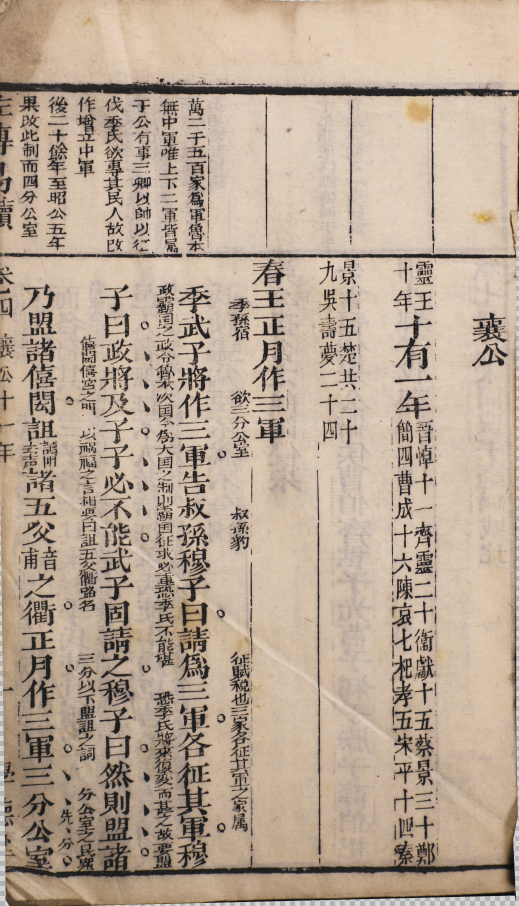 襄公
靈王十年十有一年晉悼十一齊靈二十衛獻十五蔡景三十鄭簡四曹成十六陳哀七杞孝五宋平十四秦
景十五楚共二十九吳壽夢二十四
春王正月作三軍
季孫宿 欲三分公室 叔孫豹 征賦稅也三家各征其軍之家屬
季武子將作三軍告叔孫穆子曰請爲三軍各征其軍穆
政霸國之政令 大國之制則霸國征求必重恐季氏不能堪 恐季氏將來復變而甚之故要盟
子曰政將及子子必不能武子固請之穆子曰然則盟諸
僖閎僖宮之門 以禍福之言相要曰詛五父衢路名 三分以下盟詛之詞 分公室之民衆
乃盟諸僖閎詛諸五父音甫之衢正月作三軍三分公室
萬二千五百家爲軍魯本
無中軍唯上下二軍皆屬
于公有事三卿以帥以征
伐季氏欲專其民人故改
作增立中軍
後二十餘年至昭公五年
果改此制而四分公室
左傳易讀
卷四 襄公十一年